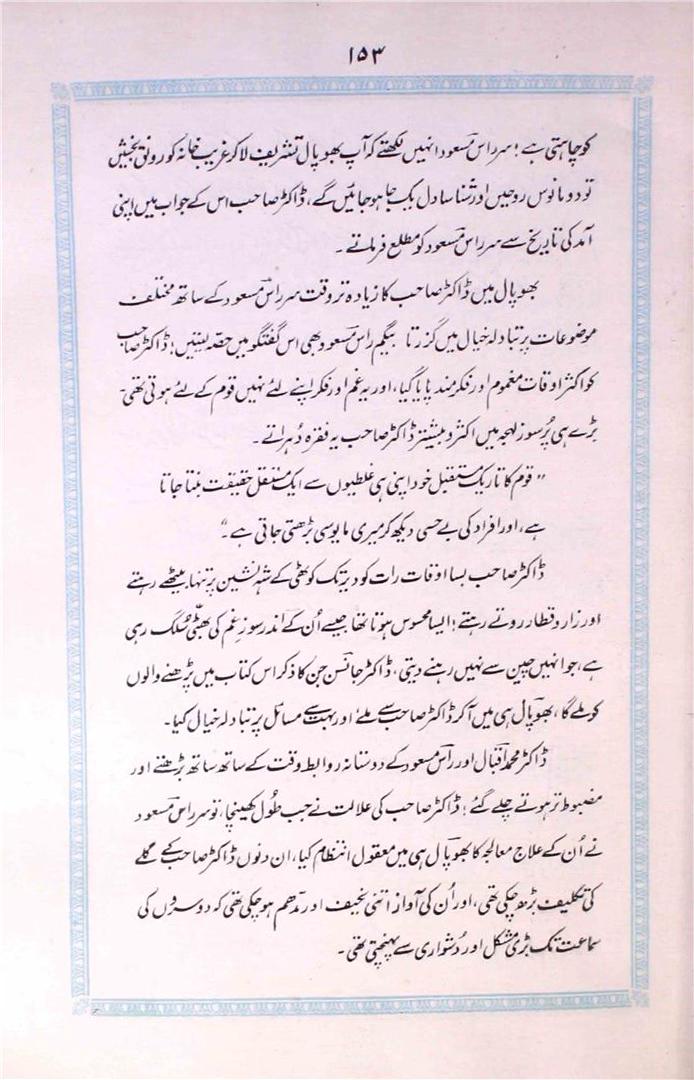 ۱۵۳
کو چاہتی ہے! سر راس مسعود انہیں لکھتے کہ آپ بھوپال تشریف لا کر غریب خانہ کو رونق بخشیں
تو دو مانوس روحیں اور شناسا دل یک جا ہو جائیں گے، ڈاکٹر صاحب اس کے جواب میں اپنی
آمد کی تاریخ سے سر راس مسعود کو مطلع فرماتے۔
بھوپال میں ڈاکٹر صاحب کا زیادہ تر وقت سر راس مسعود کے ساتھ مختلف
موضوعات پر تبادلہ خیال میں گزرتا بیگم راس مسعود بھی اس گفتگو میں حصہ لیتیں؛ ڈاکٹر صاحب
کو اکثر اوقات مغموم اور فکر مند پایا گیا، اور یہ غم اور فکر اپنے لئے نہیں قوم کے لئے ہوتی تھی۔
بڑے ہی پُر سوز لہجہ میں اکثر و بیشتر ڈاکٹر صاحب یہ فقرہ دُہراتے۔
"قوم کا تاریک مستقبل خود اپنی ہی غلطیوں سے ایک مستقل حقیقت بنتا جاتا
ہے، اور افراد کی بے حسی دیکھ کر میری مایوسی بڑھتی جاتی ہے۔"
ڈاکٹر صاحب بسا اوقات رات کو دیر تک کوٹھی کے شہ نشین پر تنہا بیٹھے رہتے
اور زار و قطار روتے رہتے؛ ایسا محسوس ہوتا تھا جیسے اُن کے اندر سوزِ غم کی بھٹی سُلگ رہی
ہے، جو انہیں چین سے نہیں رہنے دیتی، ڈاکٹر جانسن جن کا ذکر اس کتاب میں پڑھنے والوں
کو ملے گا، بھوپال ہی میں آکر ڈاکٹر صاحب سے ملے اور بہت سے مسائل پر تبادلہ خیال کیا۔
ڈاکٹر محمد اقبال اور راس مسعود کے دوستانہ روابط وقت کے ساتھ ساتھ بڑھتے اور
مضبوط تر ہوتے چلے گئے؛ ڈاکٹر صاحب کی علالت نے جب طُول کھینچا، تو سر راس مسعود
نے اُن کے علاج معالجہ کا بھوپال ہی میں معقول انتظام کیا، ان دنوں ڈاکٹر صاحب کے گلے
کی تکلیف بڑھ چکی تھی، اور اُن کی آواز اتنی نحیف اور مدھم ہو چکی تھی کہ دوسروں کی
سماعت تک بڑی مشکل اور دُشواری سے پہنچتی تھی۔